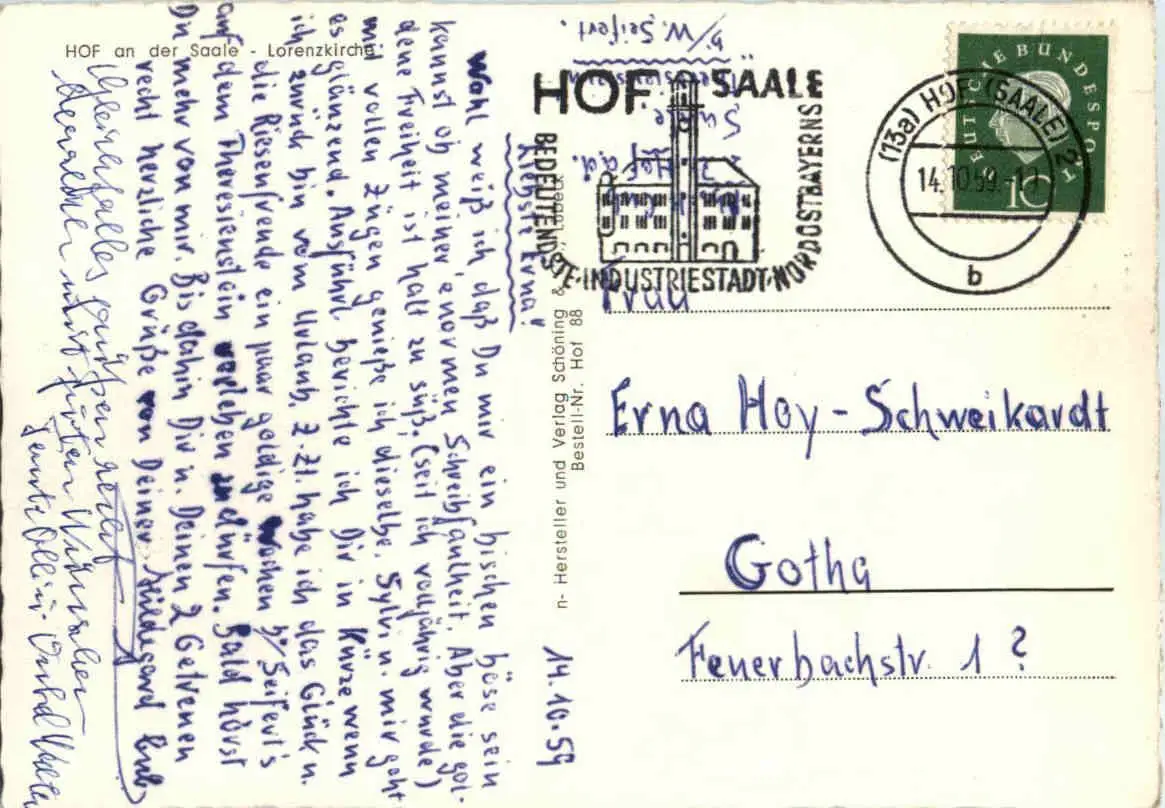 HOF an der Saale - Lorenzkirche
14.10.59
Liebste Erna!
Wohl weiß ich, daß Du mir ein bischen böse sein
kannst ob meiner enormen Schreibfaulheit. Aber die gol-
dene Freiheit ist halt zu süß, (seit ich volljährig wurde)
und vollen Zügen genieße ich dieselbe. Sylvi u. mir geht
es glänzend. Ausführl. berichte ich Dir in Kürze wenn
ich zurück bin vom Urlaub. Z. Zt. habe ich das Glück u.
die Riesenfreude ein paar goldige Wochen b/Seifert's
auf dem Theresienstein verleben zu dürfen. Bald hörst
Du mehr von mir. Bis dahin Dir u. Deinen 2 Getreuen
recht herzliche Grüße von Deiner Hildegard
Gleichfalls
n- Hersteller und Verlag Schöning & Lübeck
Bestell-Nr. Hof 88
b/W. Seifert
Hof a.d.
Saale
HOF SAALE
BEDEUTENDSTE INDUSTRIESTADT NORDOSTBAYERNS
DEUTSCHE BUNDESPOST
10
(13a) HOF (SAALE) 2
14.10.59
b
Frau
Erna Hoy - Schweikardt
Gotha
Feuerbachstr. 1 ?